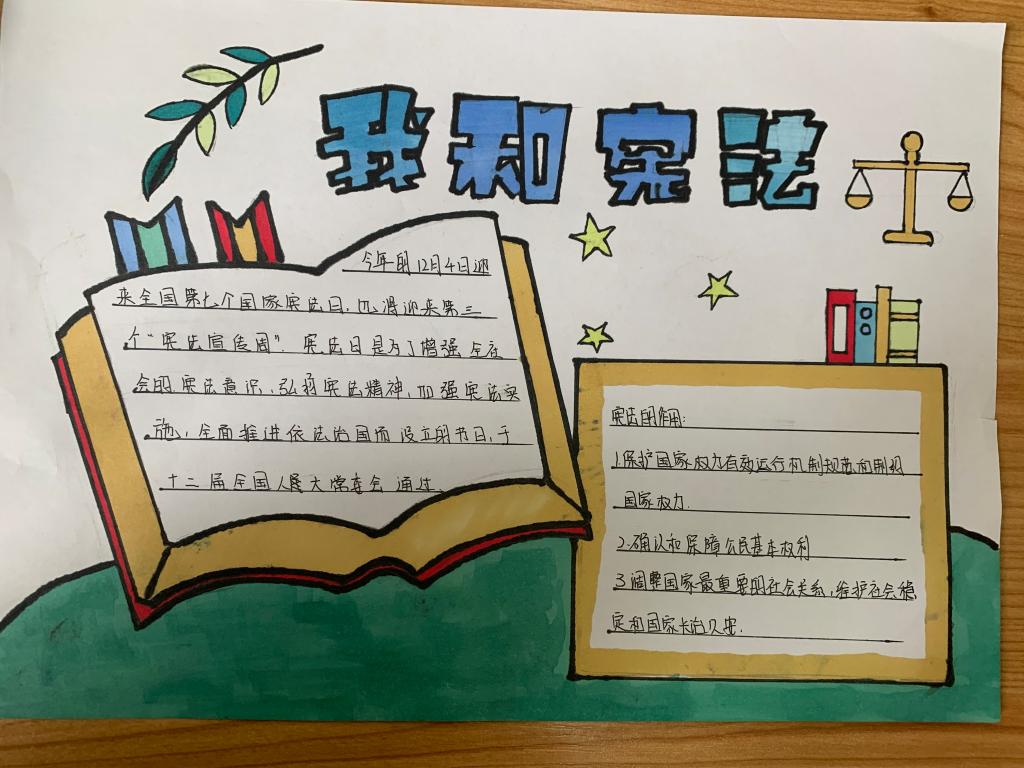 我和宪法
今年的12月4日迎
来全国第七个国家宪法日,也得迎来第三
个“宪法宣传周”.宪法日是为了增强全社
会的宪法意识,弘扬宪法精神,加强宪法实
施,全面推进依法治国而设立的节日,于
十二届全国人民大常委会通过.
宪法的作用:
1.保护国家权力有效运行机制规范和制约
国家权力.
2.确认和保障公民基本权利
3.调整国家最重要的社会关系,维护社会稳
定和国家长治久安.